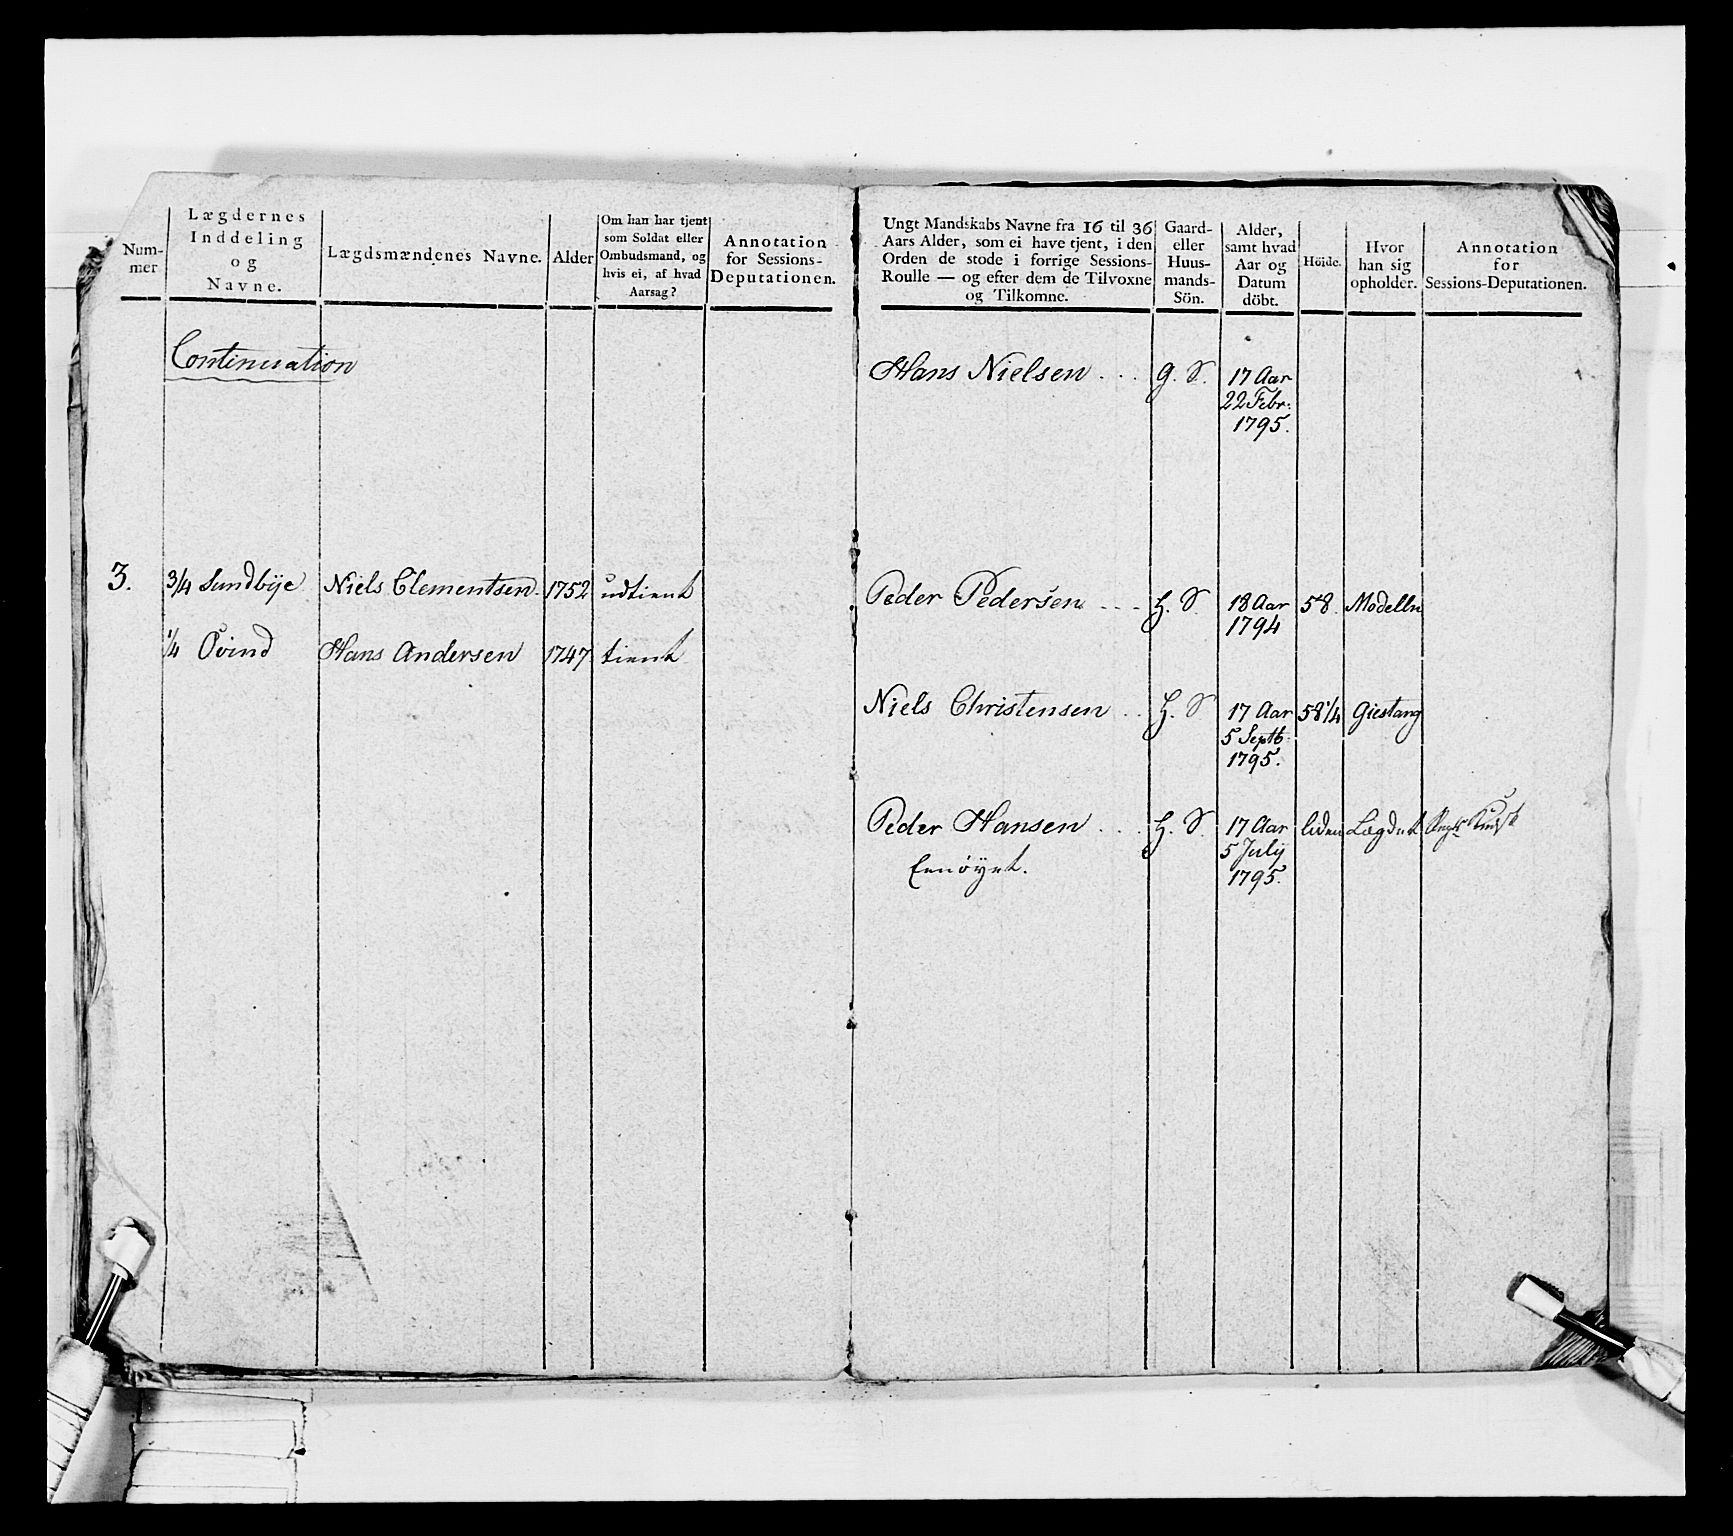 Num-
mer
Lægdernes
Inddeling
og
Navne.
Lægdsmændenes Navne.
Alder
Om han har tjent
som Soldat eller
Ombudsmand, og
hvis ei, af hvad
Aarsag?
Annotation
for Sessions-
Deputationen.
Continuation
3.
3/4 Sundbÿe
Niels Clementsen
1752
udtient
1/4 Övind
Hans Andersen
1747
tient
Ungt Mandskabs Navne fra 16 til 36
Aars Alder, som ei have tjent, i den
Orden de stode i forrige Sessions-
Roulle — og efter dem de Tilvoxne
og Tilkomne.
Gaard-
eller
Huus-
mands-
Sön.
Alder,
samt hvad
Aar og
Datum
döbt.
Höide.
Hvor
han sig
opholder.
Annotation
for
Sessions-Deputationen.
Hans Nielsen . . .
G. S.
17 Aar
22 Febr:
1795.
Peder Pedersen - - -
H. S.
18 Aar
1794
58.
Modelln
Niels Christensen . .
H. S
17 Aar
5 Septb:
1795.
58 1/4
Giestang
Peder Hansen . . .
H. S.
17 Aar
5 July
1795.
liden
Lægdet
Eenöyet.